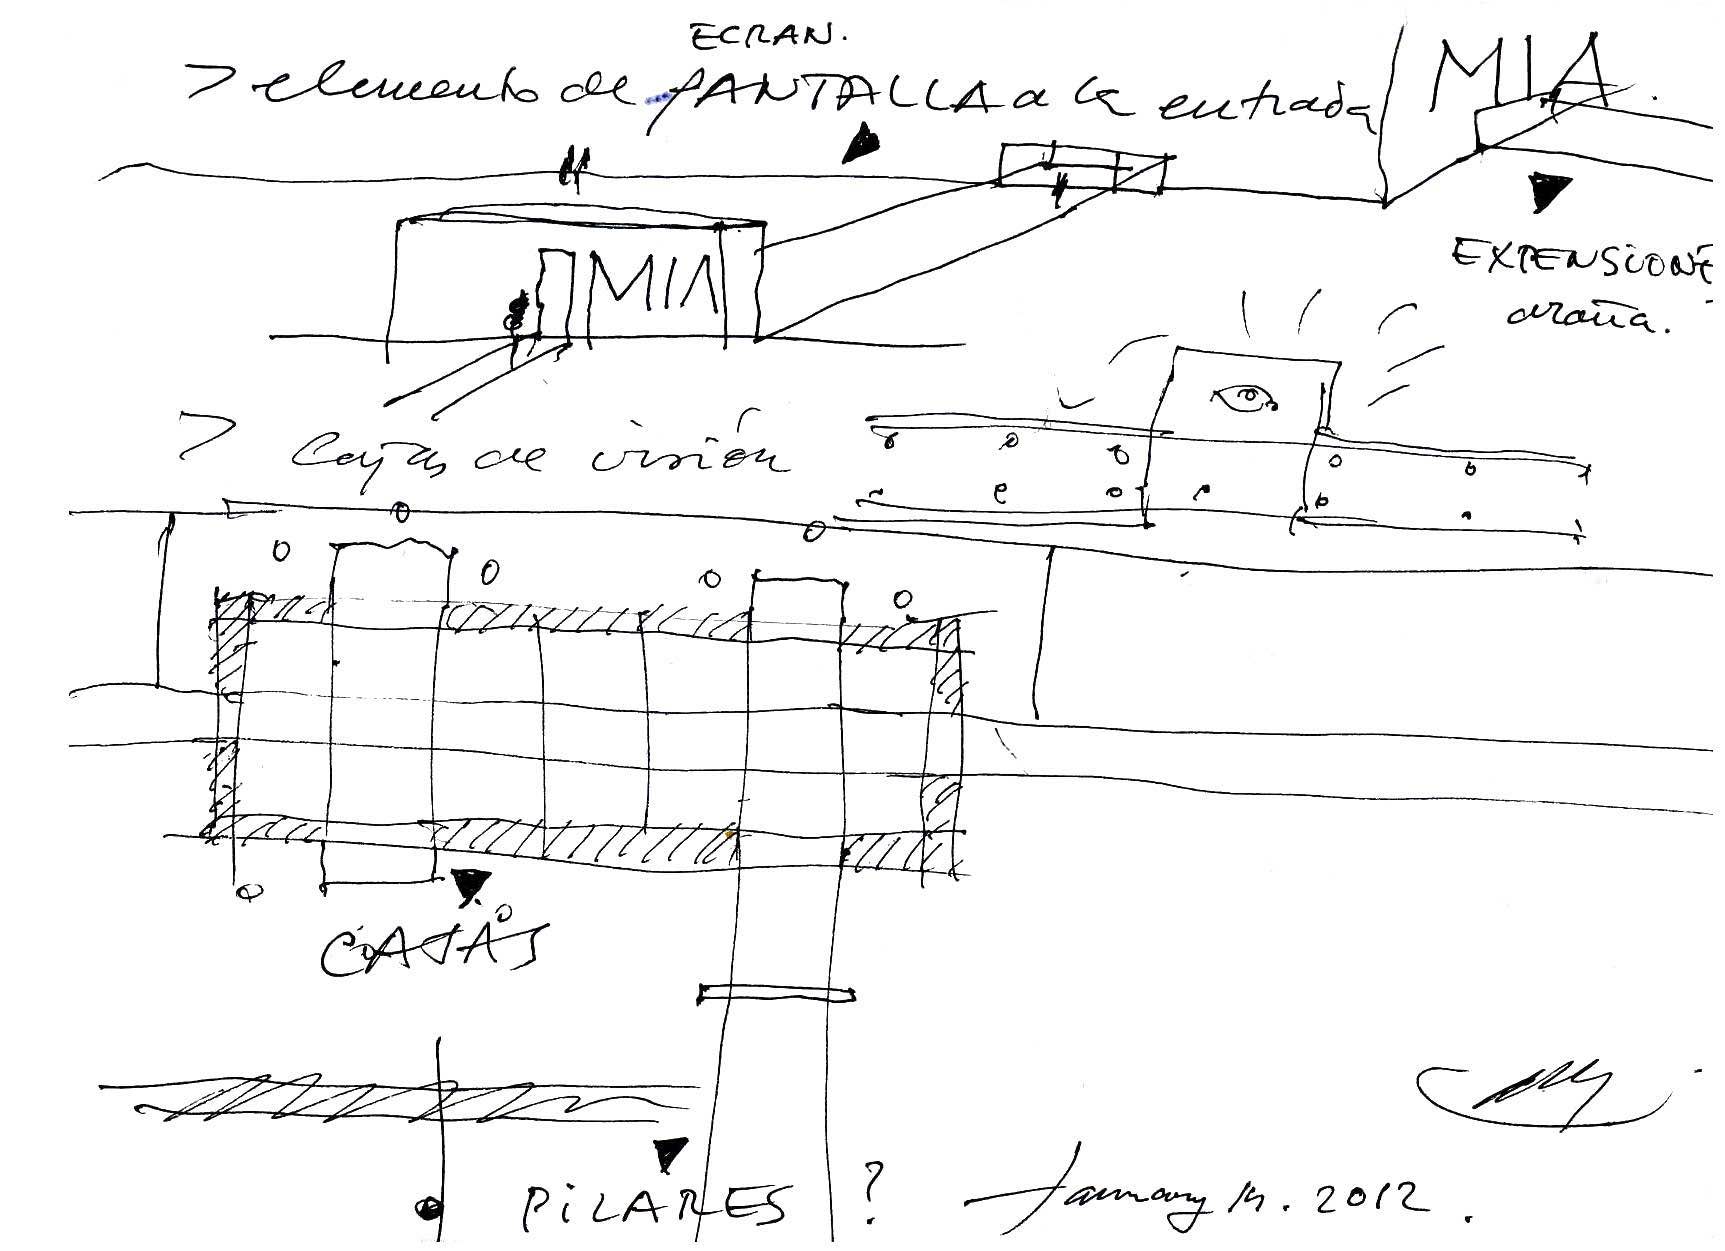 ECRAN.
> elemento de PANTALLA a la entrada
MIA.
MIA
EXTENSIONE
araña.
> Cajas de visión
CAJAS
PiLARES ?
January 14. 2012.